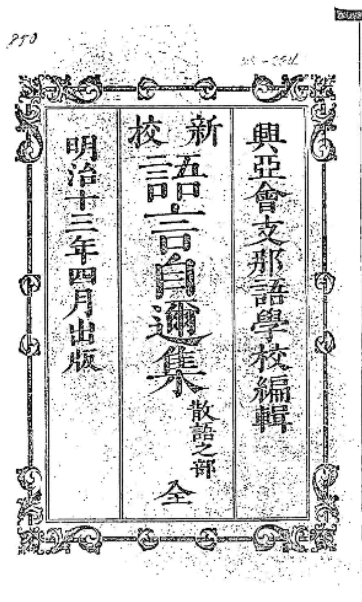 850
興亞會支那語學校編輯
新校
語言自邇集
散語之部
全
明治十三年四月出版